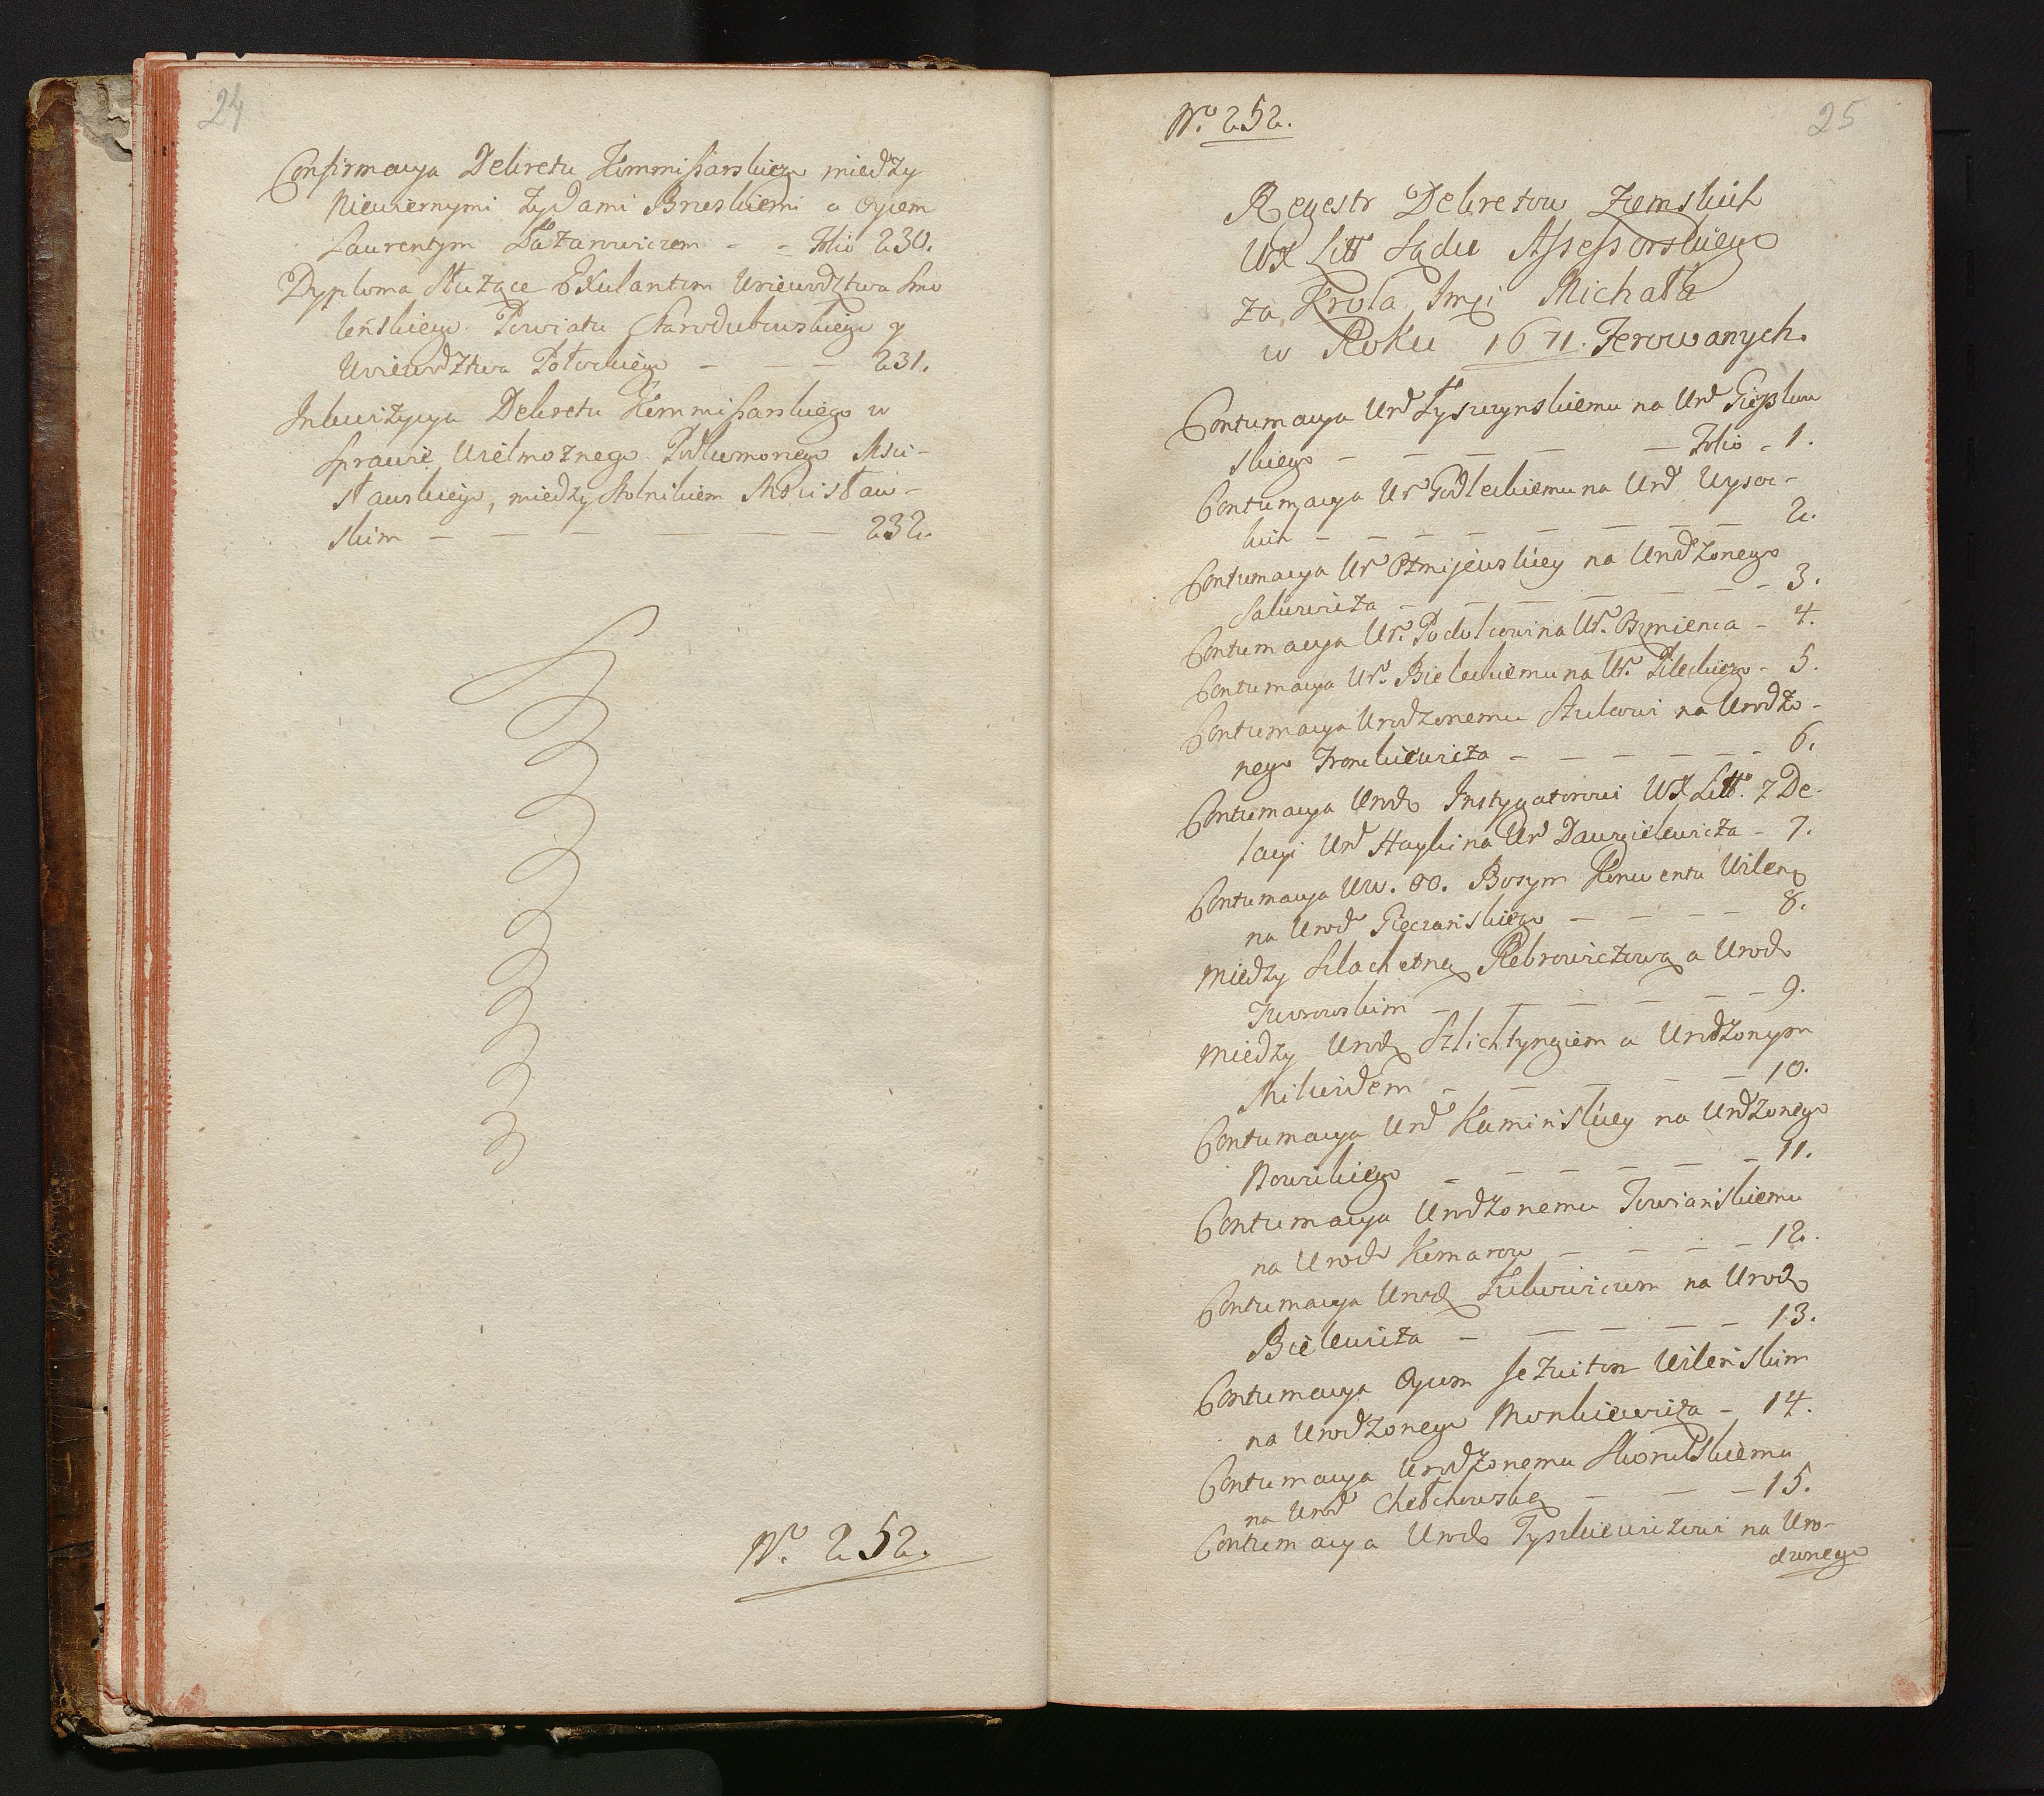 24
Confirmacya Dekretu Kommissarskiego między
Niewiernymi Żydami Brzeskiemi a Oycem
Laurentym Łazarowiczem - - Folio 230.
Dyploma Służące Exulantom Woiewodztwa Smo
leńskiego Powiatu Starodubowskiego y
Woiewodztwa Połockiego - - - 231.
Inkwizycya Dekretu Kommissarskiego w
Sprawie Wielmożnego Podkomorzego Mści-
sławskiego, między Stolnikiem Mscisław-
skim - - - - - - 232.
Nº. 252.
Nº. 252.
25
Regestr Dekretow Ziemskich
WX Litt Sądu Assessorskiego
za Krola Jmci Michała
w Roku 1671. Ferowanych.
Contumacya Urd Łyszczynskiemu na Urd
skiego - - - - - Folio - 1.
Contumacya Ur Godleckiemu na Urd Wysoc-
kich - - - - - - - 2.
Contumacya Ur na Urodzonego
Sakowicza - - - - - - 3.
Contumacya Ur. Podolcowi na Ur. - 4.
Contumacya Ur. Bieleckiemu na Ur. - 5.
Contumacya Urodzonemu Stulcowi na Urodzo-
nego Fronckiewicza - - - - - - 6.
Contumacya Urod Instygatorowi WX Litt. z De-
lacyi Urd Hayki na Ur Daugielewicza - 7.
Contumacya Ww. OO. Bosym Konwentu Wilen
na Urod - - - - 8.
Między Szlachetną Rebrowiczową a Urod
Tworowskim - - - - - - 9.
Między Urod Szlichtyngiem a Urodzonym
Mikwidem - - - - - 10.
Contumacya Urd Kamińskiey na Urdzonego
Nowickiego - - - - - 11.
Contumacya Urodzonemu Towiańskiemu
na Urod Komarow - - - - 12.
Contumacya Urod na Urod
Bielewicza - - - - - 13.
Contumacya Oycom Jezuitom Wileńskim
na Urodzonego Monkiewicza - 14.
Contumacya Urodzonemu Skorulskiemu
na Urod Chełchowską - - - 15.
Contumacya Urod Tyszkiewiczowi na Uro-
dzonego